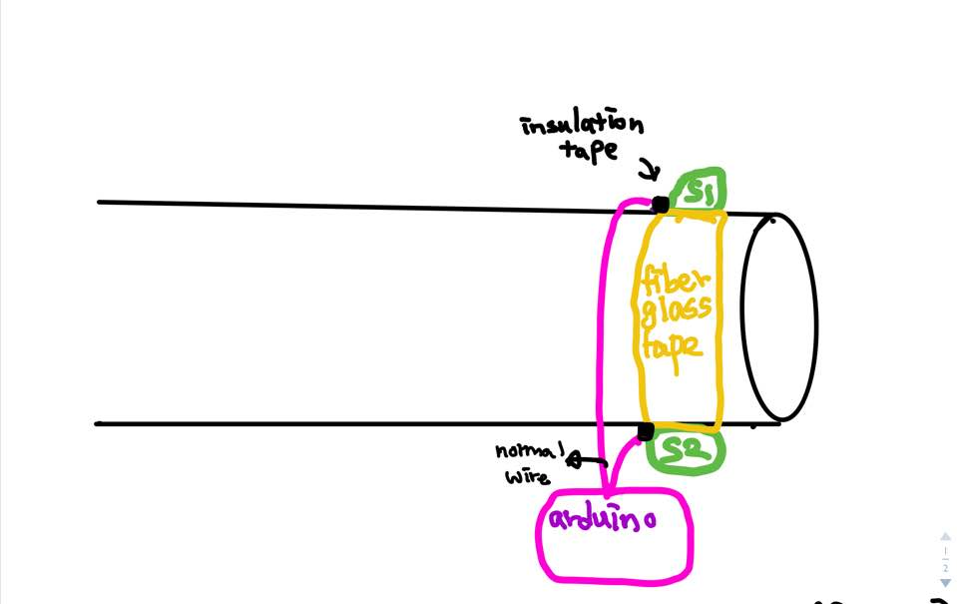 insulation
tape
S1
fiber
glass
tape
S2
normal
wire
arduino
1
2